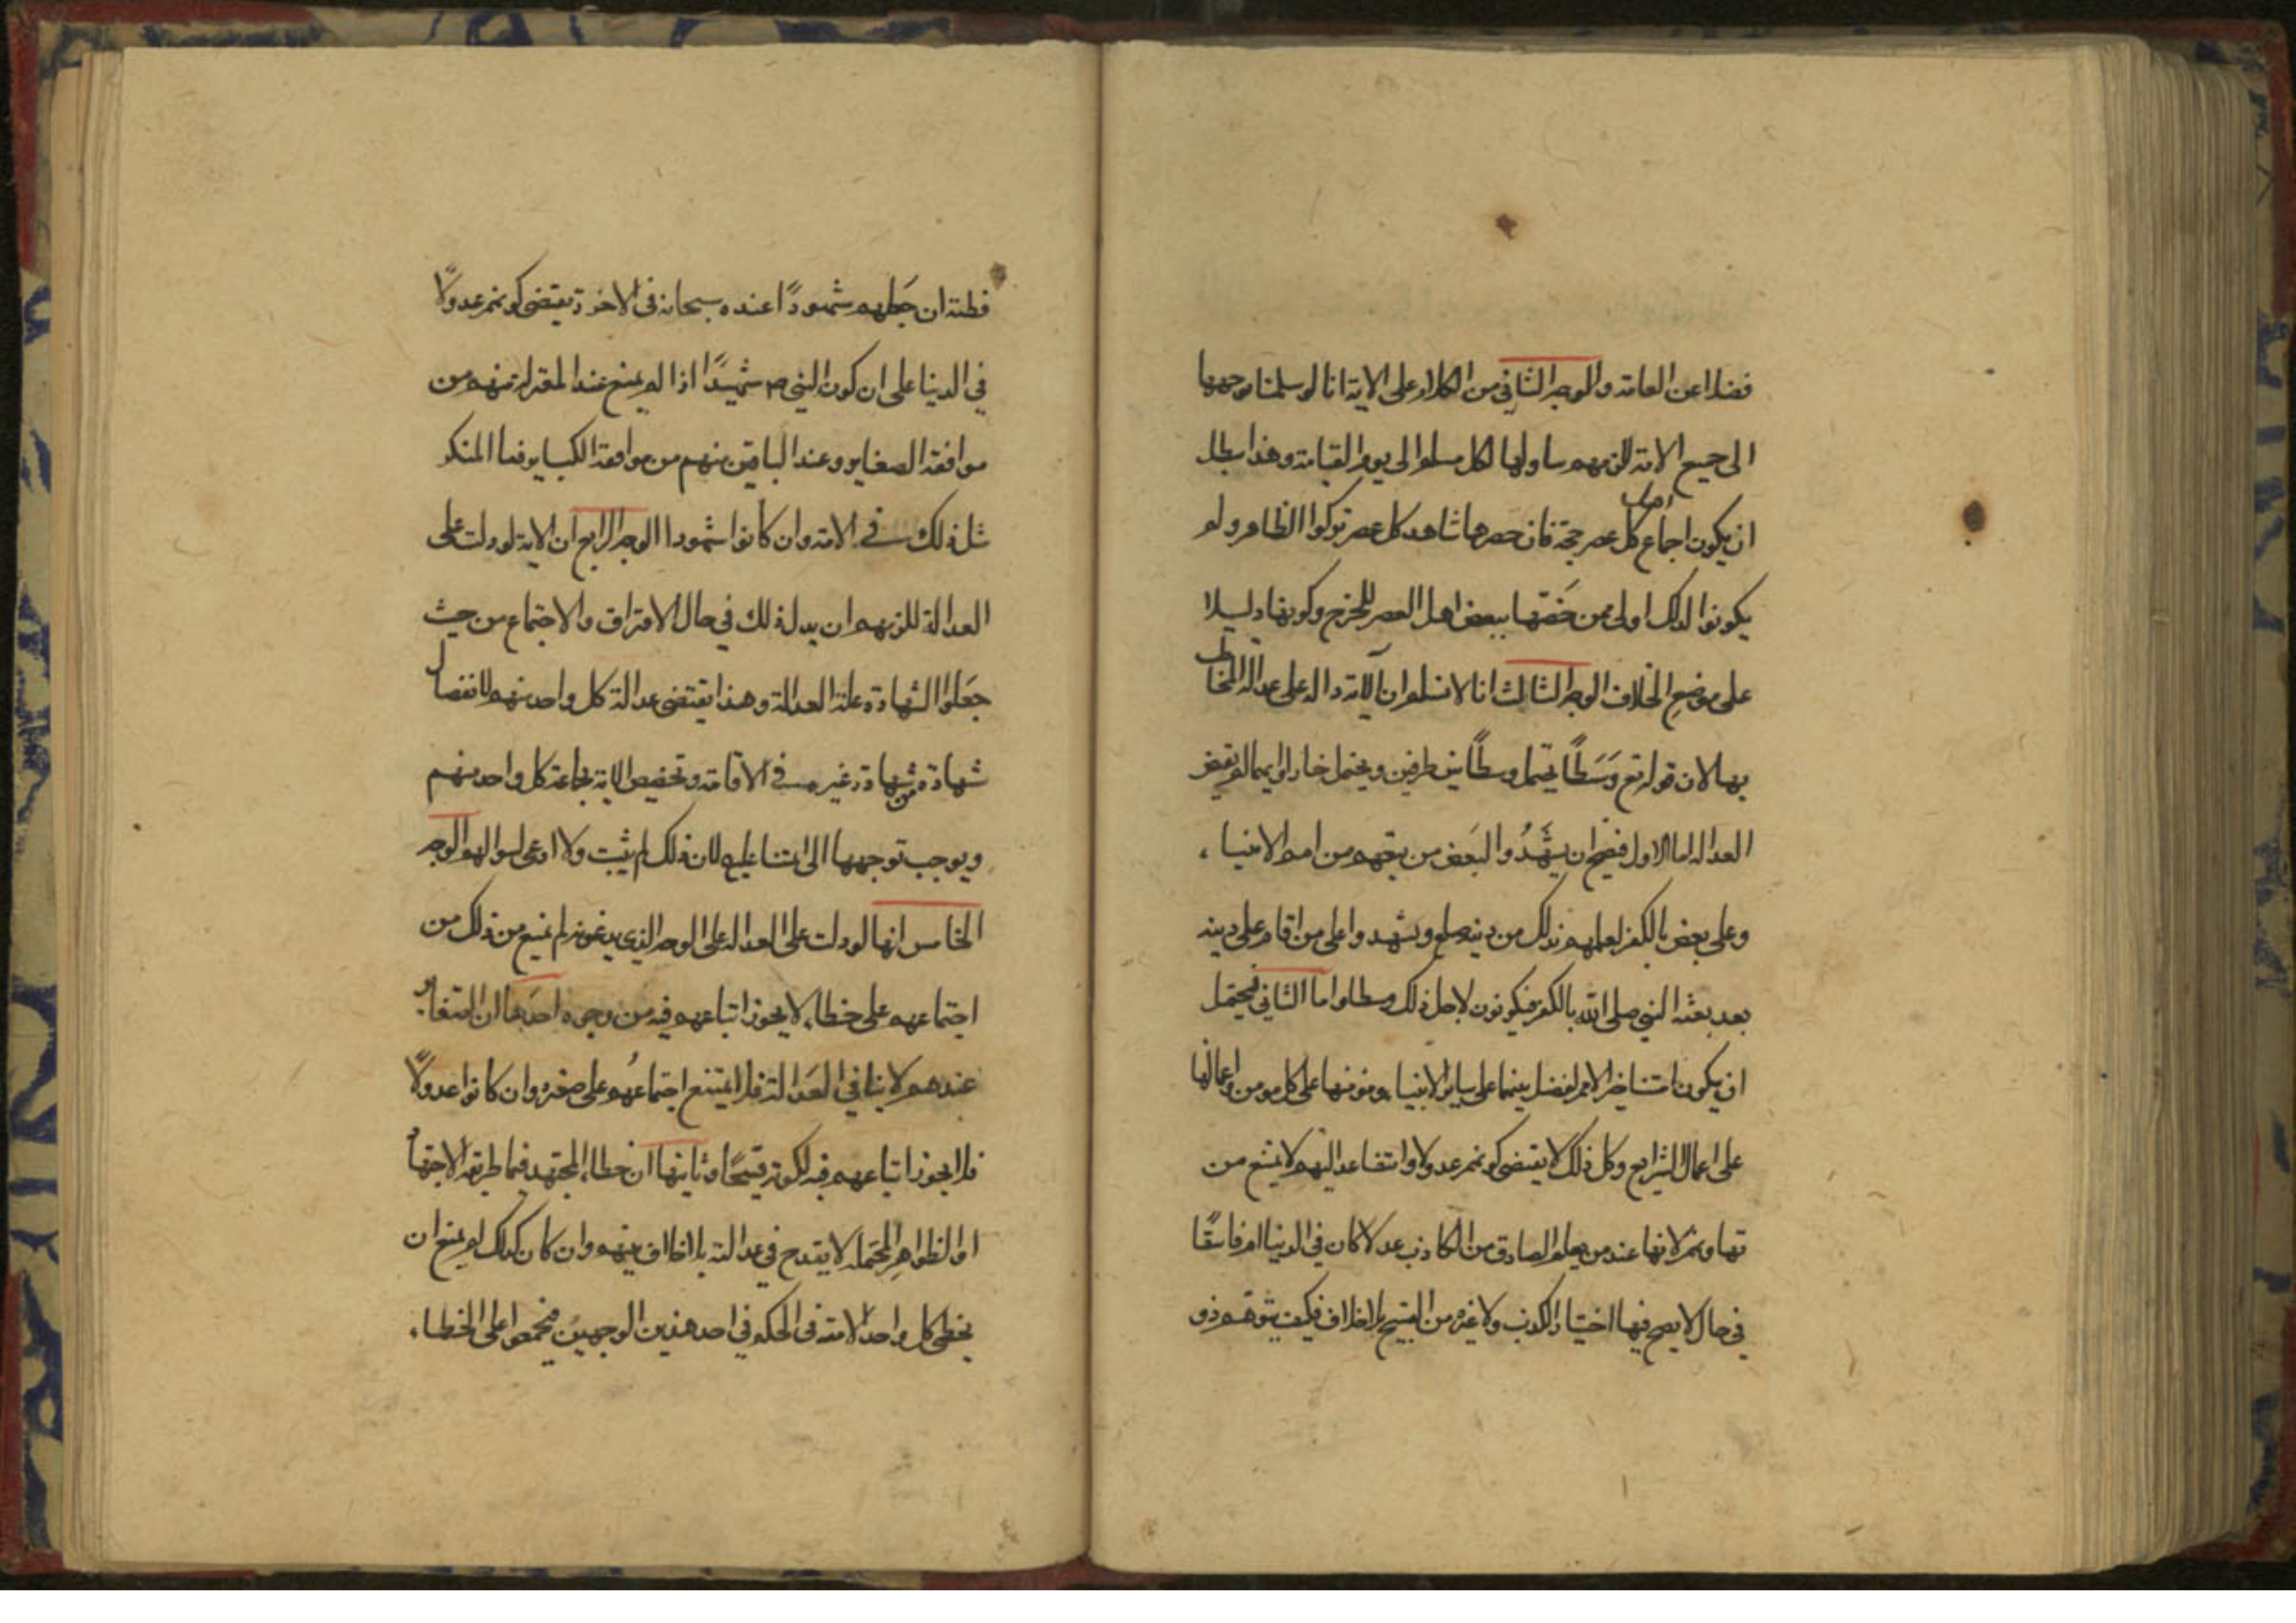 فضلا عن العامة والوجه الثاني من الكلام على الاية انا لو سلمنا توجهها
الى جميع الامة للزمهم تناولها لكل مسلم الى يوم القيامة وهذا يبطل
ان يكون اجماع اهل كل عصر حجة فان حصرها شاهد كل عصر تركوا الظاهر ولم
يكونوا بذلك اولى ممن خصّها ببعض اهل العصر للخرج وكونها دليلا
على موضع الخلاف الوجه الثالث انا لا نسلم ان الآية دالة على عدالة المخاطب
بها لان قوله تع وَسَطًا يحتمل وسطًا بين طرفين ويحتمل خيارا وايهما لم يقتض
العدالة اما الاول فيصح ان يشهدوا لبعض من بقهم من امم الانبياء
وعلى بعض بالكفر لعلمهم بذلك من دينه صلع ويشهدوا على من اقام على دينه
بعد بعثة النبي صلى الله بالكفر فيكونون لاجل ذلك وسطا واما الثاني فيحتمل
ان يكون امتنا خير الامم لفضل نبينا على ساير الانبيا ومومنها على كل مومن واعمالها
على اعمال الشرايع وكل ذلك لا يقتضي كونهم عدولا واستشهاد اليهم لا يمنع من
شهادتهم لانها عند من يعلم الصادق من الكاذب عدلا كان في الدنيا ام فاسقًا
في حال لا يصح فيها اختيار الكذب ولا غيره من القبيح بلا خلاف فكيف يتوهم ذو
فطنة ان جَعلهم شهودًا عنده سبحانه في الاخرة يقتضي كونهم عدولًا
في الدنيا على ان كون النبي ص شهيدًا اذا لم يمنع عند المعتزلة منهم من
مواقعة الصغاير وعند الباقين منهم من مواقعة الكباير فما المنكر
مثل ذلك في الامة وان كانوا شهودا الوجه الرابع ان الاية لو دلت على
العدالة للزمهم ان يدل ذلك في حال الافتراق والاجتماع من حيث
جعلوا الشهادة علة العدالة وهذا يقتضي عدالة كل واحد منهم لانفصال
شهادة من شهادة غيره في الاقامة وتخصيص الاية بجماعة كل واحد منهم
ويوجب توجهها الى ائمتنا عليهم لان ذلك لم يثبت ولا ادعى لسوالهم الوجه
الخامس انها لو دلت على العدالة على الوجه الذي يدعونه لم يمنع من ذلك من
اجتماعهم على خطاء لا يجوز اتباعهم فيه من وجوه احدها ان الصغاير
عندهم لا ينافي العدالة فلا يمتنع اجتماعهم على صغيرة وان كانوا عدولًا
فلا يجوز اتباعهم فيه لكونه قبيحًا وثانيها ان خطاء المجتهد فيما طريقه الاجتهاد
او الظواهر المحتملة لا يقدح في عدالته بلا خلاف بينهم وان كان كذلك لم يمنع ان
يخطى كل واحد الامة في الحكم في احد هذين الوجهين فيجمعوا على الخطاء